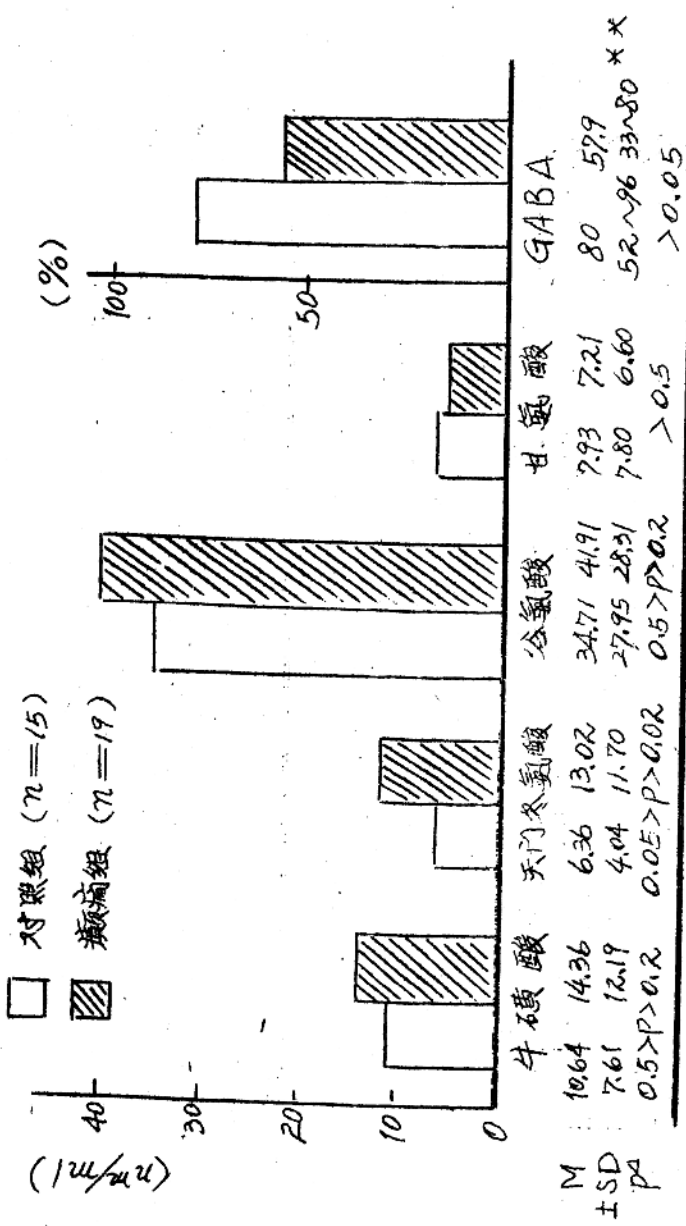 对照组 (n=15)
癫痫组 (n=19)
(nm/ml)
40
30
20
10
0
(%)
100
50
牛磺酸 天门冬氨酸 谷氨酸 甘氨酸 GABA
M : 10.64 14.36 6.36 13.02 34.71 41.91 7.93 7.21 80 57.9
±SD : 7.61 12.19 4.04 11.70 27.95 28.31 7.80 6.60 52~96 33~80 **
0.5>P>0.2 0.05>P>0.02 0.5>P>0.2 >0.5 >0.05